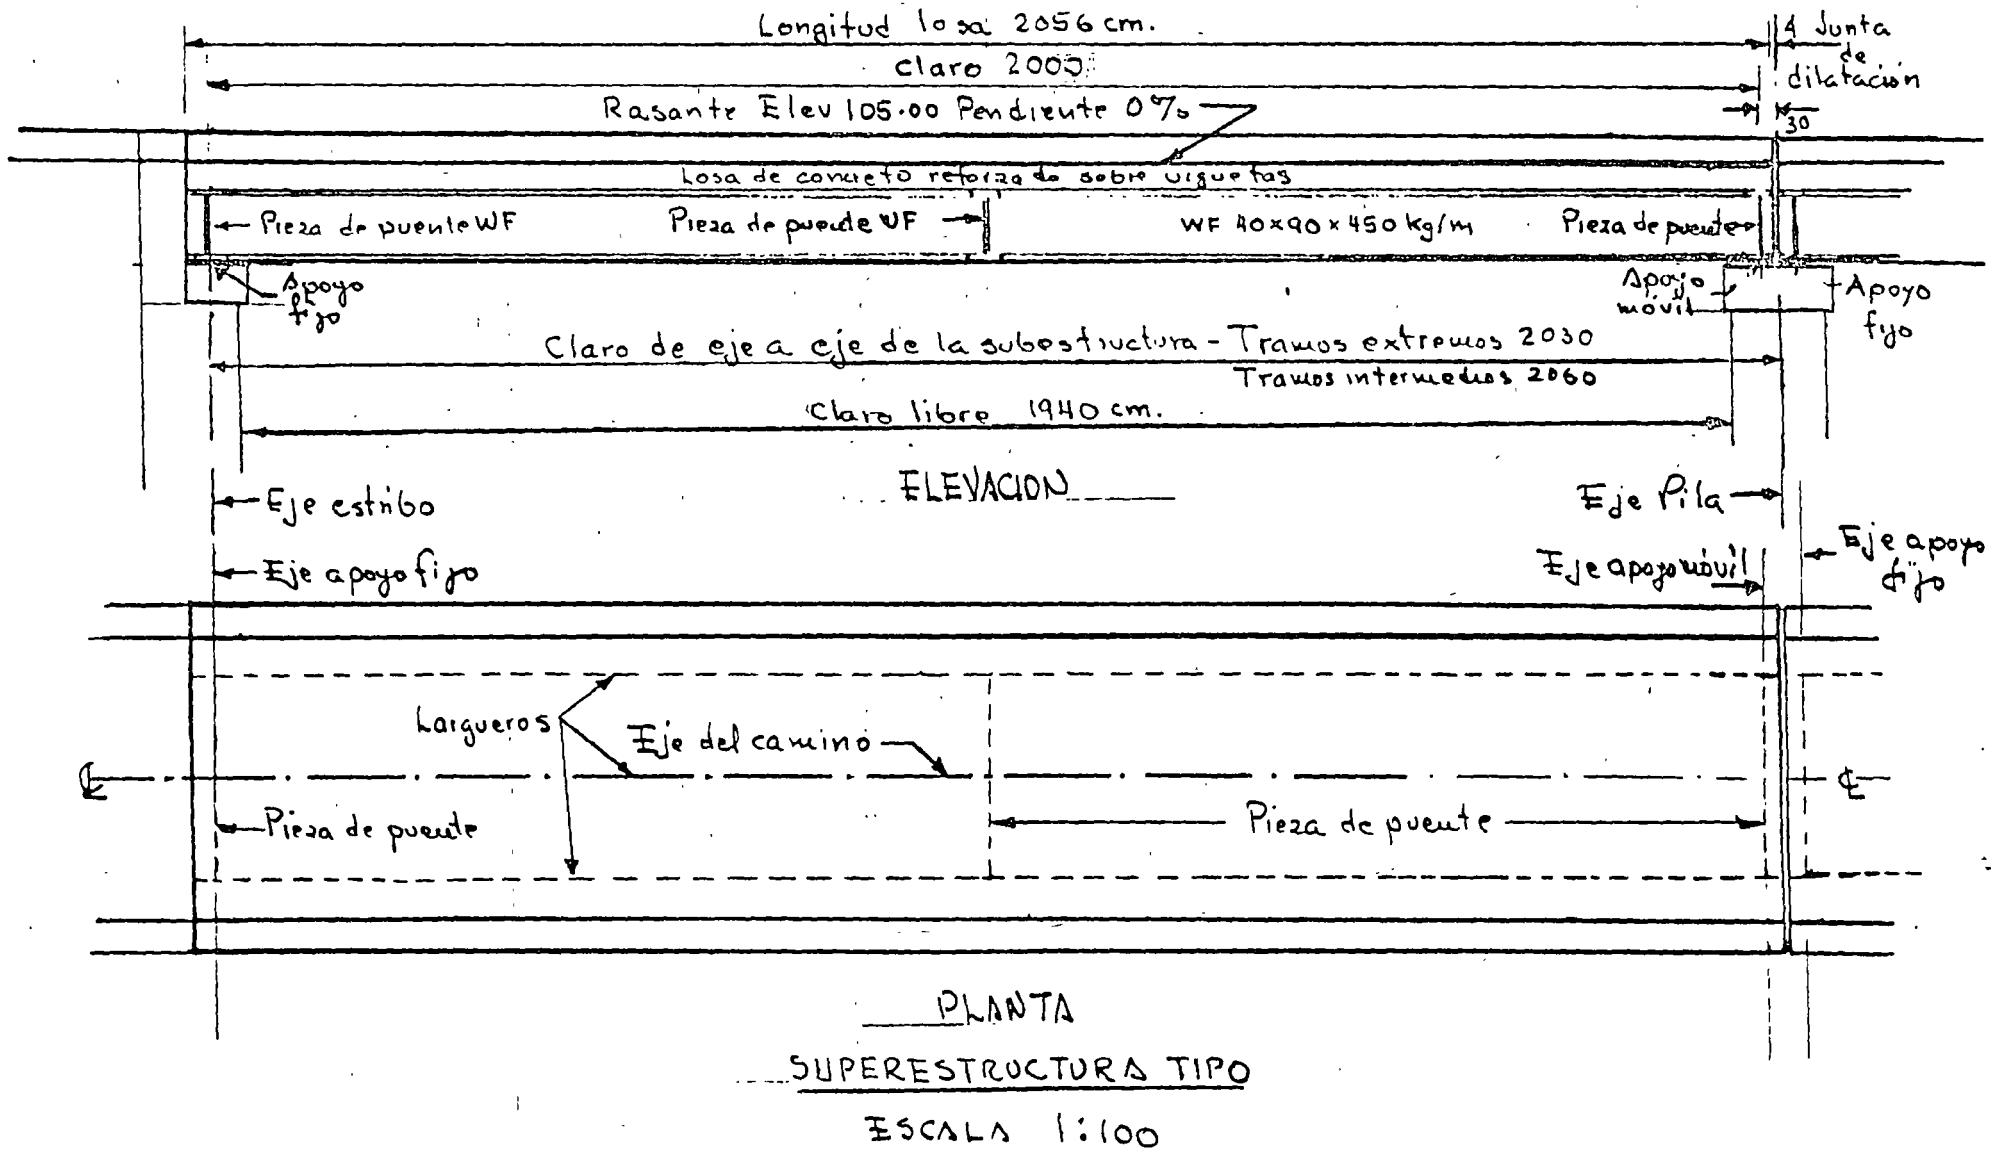 Longitud losa 2056 cm.
4 Junta
de
dilatación
claro 2000
30
Rasante Elev 105.00 Pendiente 0%
Losa de concreto reforzado sobre viguetas
Pieza de puente WF
Pieza de puente WF
WF 40x90x450 kg/m
Pieza de puente
Apoyo
fijo
Apoyo
móvil
Apoyo
fijo
Claro de eje a eje de la subestructura - Tramos extremos 2030
Tramos intermedios 2060
Claro libre 1940 cm.
ELEVACION
Eje estribo
Eje Pila
Eje apoyo fijo
Eje apoyo móvil
Eje apoyo
fijo
Largueros
Eje del camino
℄
℄
Pieza de puente
Pieza de puente
PLANTA
SUPERESTRUCTURA TIPO
ESCALA 1:100